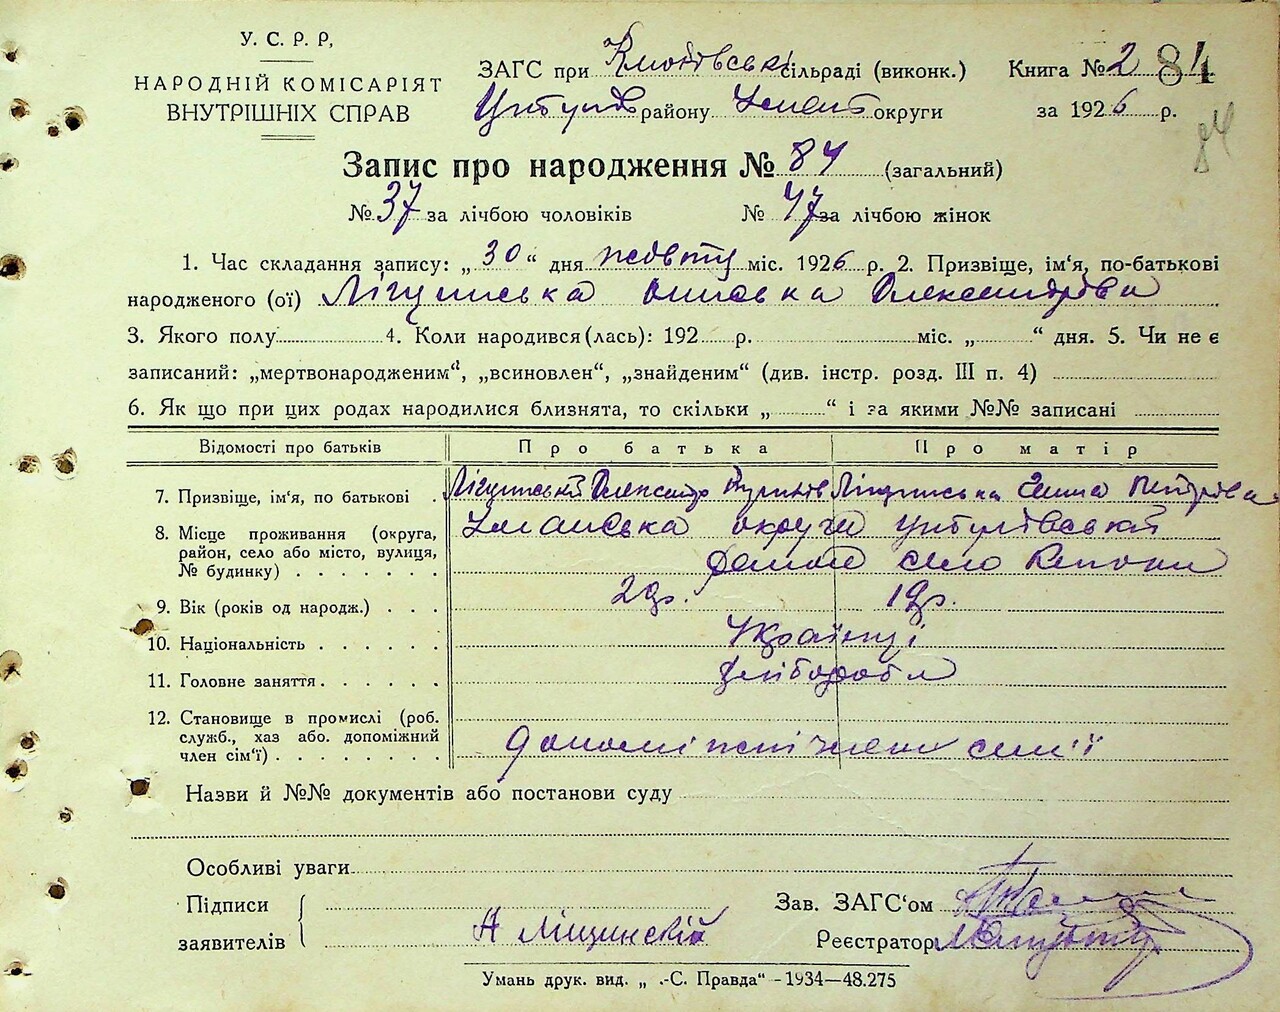 У. С. Р. Р,
НАРОДНІЙ КОМІСАРІЯТ
ВНУТРІШНІХ СПРАВ
ЗАГС при сільраді (виконк.) Книга № 2 84
району округи за 1926 р.
84
Запис про народження № 84 (загальний)
№ 37 за лічбою чоловіків № 47 за лічбою жінок
1. Час складання запису: „ 30 “ дня міс. 1926 р. 2. Призвіще, ім‘я, по-батькові
народженого (ої) Ліщинська Олександрова
3. Якого полу 4. Коли народився (лась): 192 р. міс. „ “ дня. 5. Чи не є
записаний: „мертвонародженим“, „всиновлен“, „знайденим“ (див. інстр. розд. III п. 4)
6. Як що при цих родах народилися близнята, то скільки „ “ і за якими №№ записані
Відомості про батьків Про батька Про матір
7. Призвіще, ім‘я, по батькові Ліщинський Олександр Ліщинська Петрова
8. Місце проживання (округа, Уманська округа
район, село або місто, вулиця,
№ будинку) село
9. Вік (років од народж.)
10. Національність Українці
11. Головне заняття хлібороби
12. Становище в промислі (роб.
служб., хаз або. допоміжний
член сім‘ї) допоміжні члени сімї
Назви й №№ документів або постанови суду
Особливі уваги
Підписи Зав. ЗАГС‘ом
заявителів Ліщинскій Реєстратор
Умань друк. вид. „ .-С. Правда“ - 1934—48.275